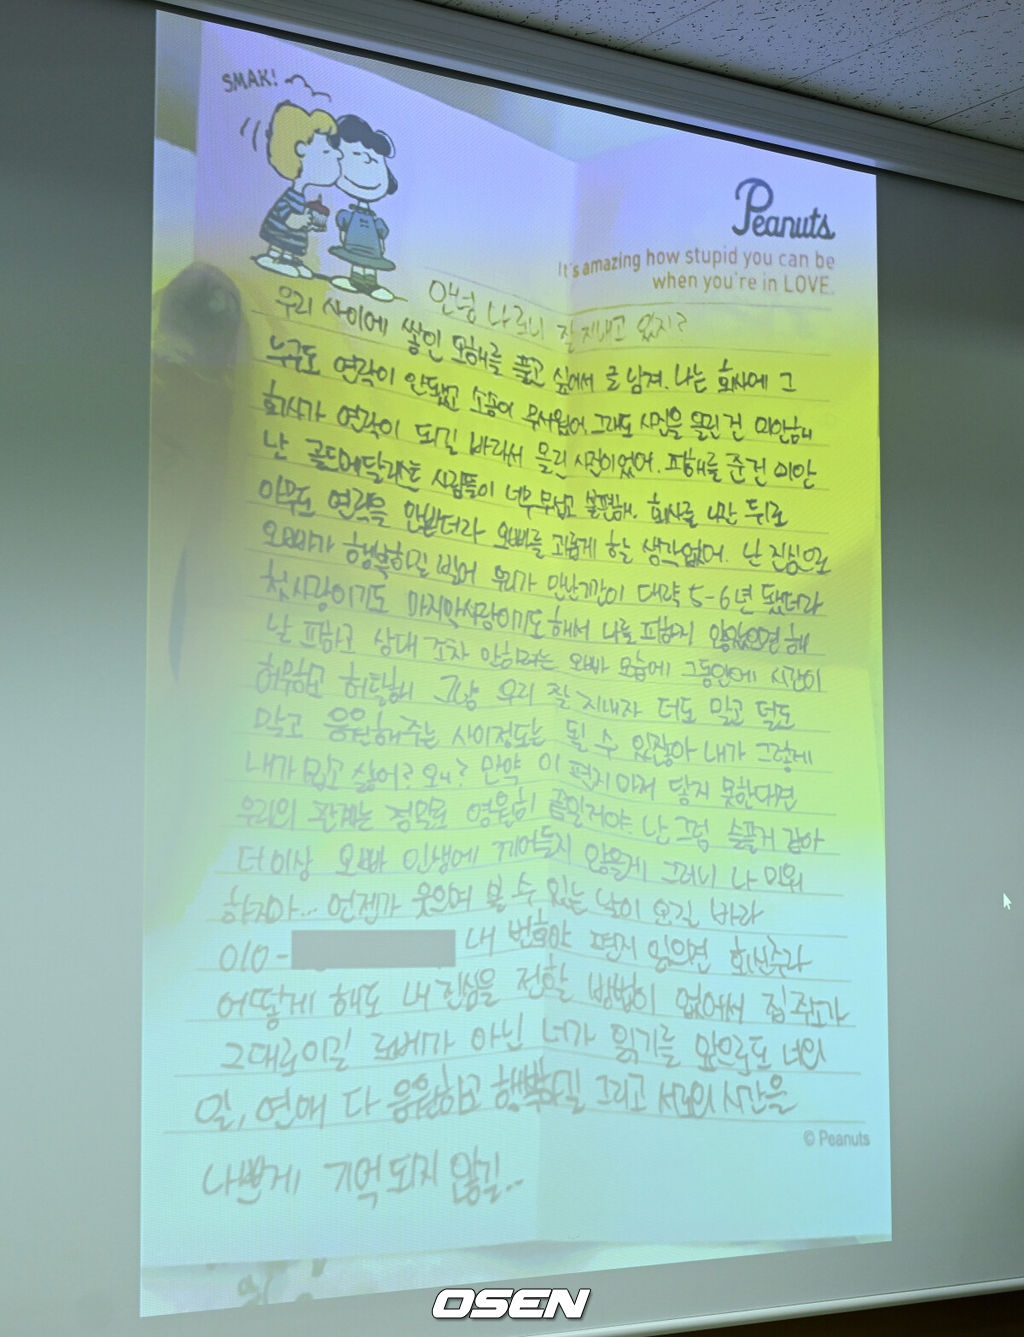 SMAK!
Peanuts
It's amazing how stupid you can be
when you're in LOVE.
안녕 나 새로니 잘 지내고 있지?
우리 사이에 쌓인 오해를 풀고 싶어서 글 남겨. 나는 회사에 그
누구도 연락이 안됐고 소송이 무서웠어 그래도 사진을 올린 건 미안해
회사가 연락이 되길 바라서 올린 사진이었어. 피해를 준건 미안
난 골드메달리스트 사람들이 너무 무섭고 불편해. 회사를 나간 뒤로
아무도 연락을 안받더라 오빠를 괴롭게 할 생각없어. 난 진심으로
오빠가 행복하길 빌어 우리가 만난기간이 대략 5-6년 됐더라
첫사랑이기도 마지막사랑이기도 해서 나를 피하지 않았으면 해
날 피하고 상대 조차 안하려는 오빠 모습에 그동안에 시간이
허무하고 허탈해 그냥 우리 잘 지내자 더도 말고 덜도
말고 응원해주는 사이정도는 될 수 있잖아 내가 그렇게
내가 밉고 싫어? 왜? 만약 이 편지마저 닿지 못한다면
우리의 관계는 정말로 영원히 끝일거야 난 그럼 슬플거 같아
더 이상 오빠 인생에 끼어들지 않을게 그러니 나 미워
하지마... 언젠가 웃으며 볼 수 있는 날이 오길 바라
010- 내 번호야 편지 읽으면 회신주라
어떻게 해도 내 진심을 전할 방법이 없어서 집 주소가
그대로이길 로베가 아닌 너가 읽기를 앞으로도 너의
일, 연애 다 응원하고 행복하길 그리고 서로의 시간을
나쁘게 기억되지 않길..
© Peanuts
OSEN